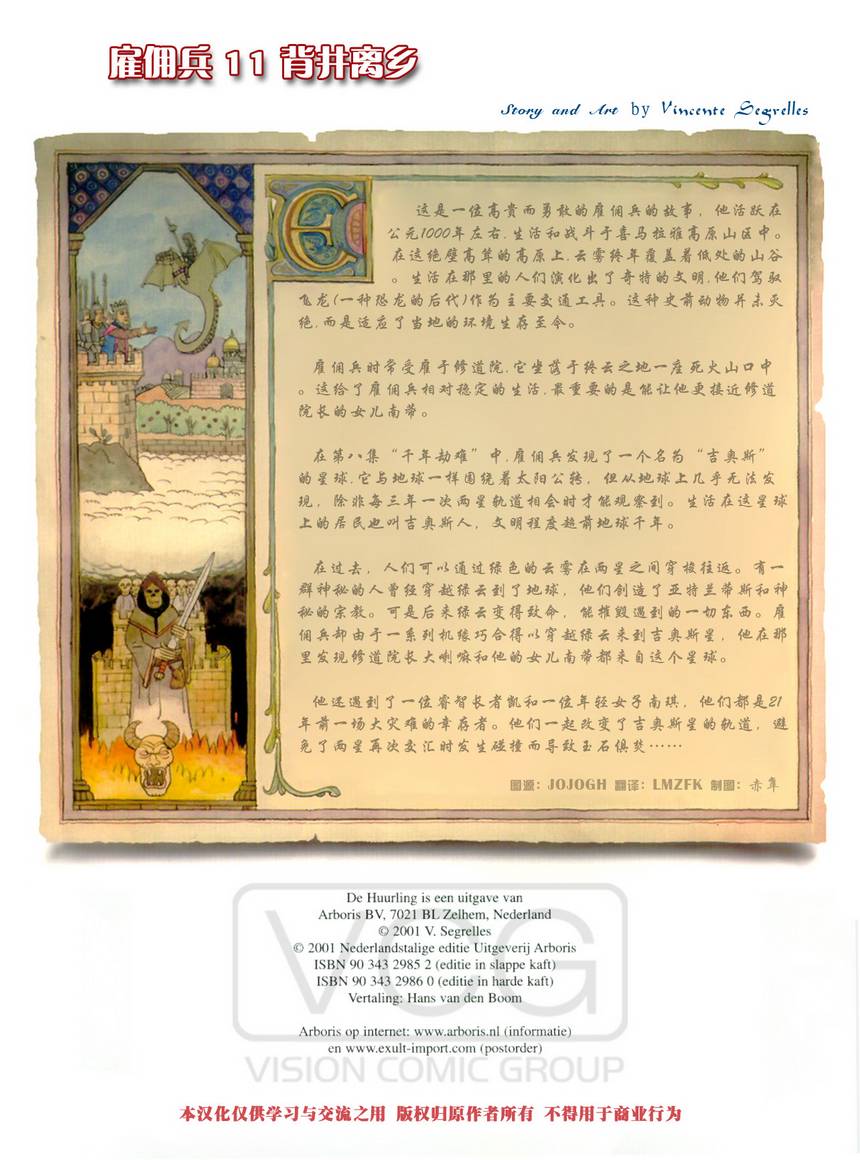 雇佣兵 11 背井离乡
Story and Art by Vincente Segrelles
E
这是一位高贵而勇敢的雇佣兵的故事，他活跃在
公元1000年左右.生活和战斗于喜马拉雅高原山区中。
在这绝壁高耸的高原上.云雾终年覆盖着低处的山谷
。生活在那里的人们演化出了奇特的文明.他们驾驭
飞龙(一种恐龙的后代)作为主要交通工具。这种史前动物并未灭
绝.而是适应了当地的环境生存至今。
雇佣兵时常受雇于修道院.它坐落于终云之地一座死火山口中
。这给了雇佣兵相对稳定的生活.最重要的是能让他更接近修道
院长的女儿南蒂。
在第八集“千年劫难”中.雇佣兵发现了一个名为“吉奥斯”
的星球.它与地球一样围绕着太阳公转，但从地球上几乎无法发
现，除非每三年一次两星轨道相会时才能观察到。生活在这星球
上的居民也叫吉奥斯人，文明程度超前地球千年。
在过去，人们可以通过绿色的云雾在两星之间穿梭往返。有一
群神秘的人曾经穿越绿云到了地球，他们创造了亚特兰蒂斯和神
秘的宗教。可是后来绿云变得致命，能摧毁遇到的一切东西。雇
佣兵却由于一系列机缘巧合得以穿越绿云来到吉奥斯星，他在那
里发现修道院长大喇嘛和他的女儿南蒂都来自这个星球。
他还遇到了一位睿智长者凯和一位年轻女子南琪，他们都是21
年前一场大灾难的幸存者。他们一起改变了吉奥斯星的轨道，避
免了两星再次交汇时发生碰撞而导致玉石俱焚……
图源：JOJOGH 翻译：LMZFK 制图：赤隼
De Huurling is een uitgave van
Arboris BV, 7021 BL Zelhem, Nederland
© 2001 V. Segrelles
© 2001 Nederlandstalige editie Uitgeverij Arboris
ISBN 90 343 2985 2 (editie in slappe kaft)
ISBN 90 343 2986 0 (editie in harde kaft)
Vertaling: Hans van den Boom
Arboris op internet: www.arboris.nl (informatie)
en www.exult-import.com (postorder)
VCG
VISION COMIC GROUP
本汉化仅供学习与交流之用 版权归原作者所有 不得用于商业行为